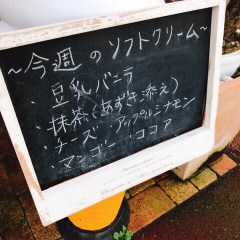 ～今週のソフトクリーム～
・豆乳バニラ
・抹茶(あずき添え)
・チーズ・アップルシナモン
・マンゴー・ココア